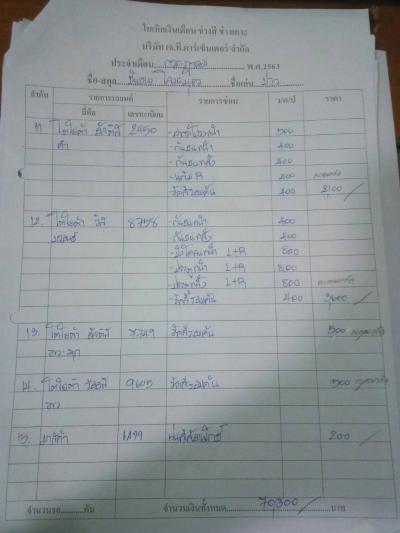 ใบเบิกเงินเดือน ช่างสี ช่างเคาะ
บริษัท เจ.พี.คาร์เซ็นเตอร์ จำกัด
ประจำเดือน กรกฎาคม พ.ศ.2563
ชื่อ-สกุล ชื่อเล่น ขาว
ลำดับ รายการรถยนต์ รายการซ่อม ว/ด/ป ราคา
ยี่ห้อ เลขทะเบียน
11 โตโยต้า อัลติส 2450 -ฝากระโปรงหน้า 500
ดำ -กันชนหน้า 400
-กันชนหลัง 400
-แก้ม R 400
-ขัดสีรอบคัน 400 2100
12. โตโยต้า วีออส 8758 -กันชนหน้า 400
บรอนซ์ -กันชนหลัง 400
L+R 800
-ประตูหน้า L+R 800
-ประตูหลัง L+R 800
-ขัดสีรอบคัน 400 3600
13. โตโยต้า อัลติส ขัดสีรอบคัน 300
ขาว-มุก
14. โตโยต้า วีออส ขัดสีรอบคัน 300
ขาว
15. มาสด้า 200
จำนวนรถ คัน จำนวนเงินทั้งหมด 70300 บาท